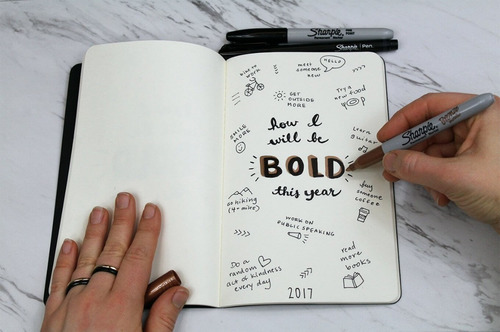 Sharpie
Sharpie Pen
HELLO
bike to
work
meet
someone
new
GET
OUTSIDE
MORE
Try a
new food
how I
will be
BOLD
this year
SMILE
MORE
Learn
guitar
Sharpie
go hiking
(4+ miles)
buy
someone
coffee
WORK ON
PUBLIC SPEAKING
Do a
random
act of kindness
every day
read
more
books
2017